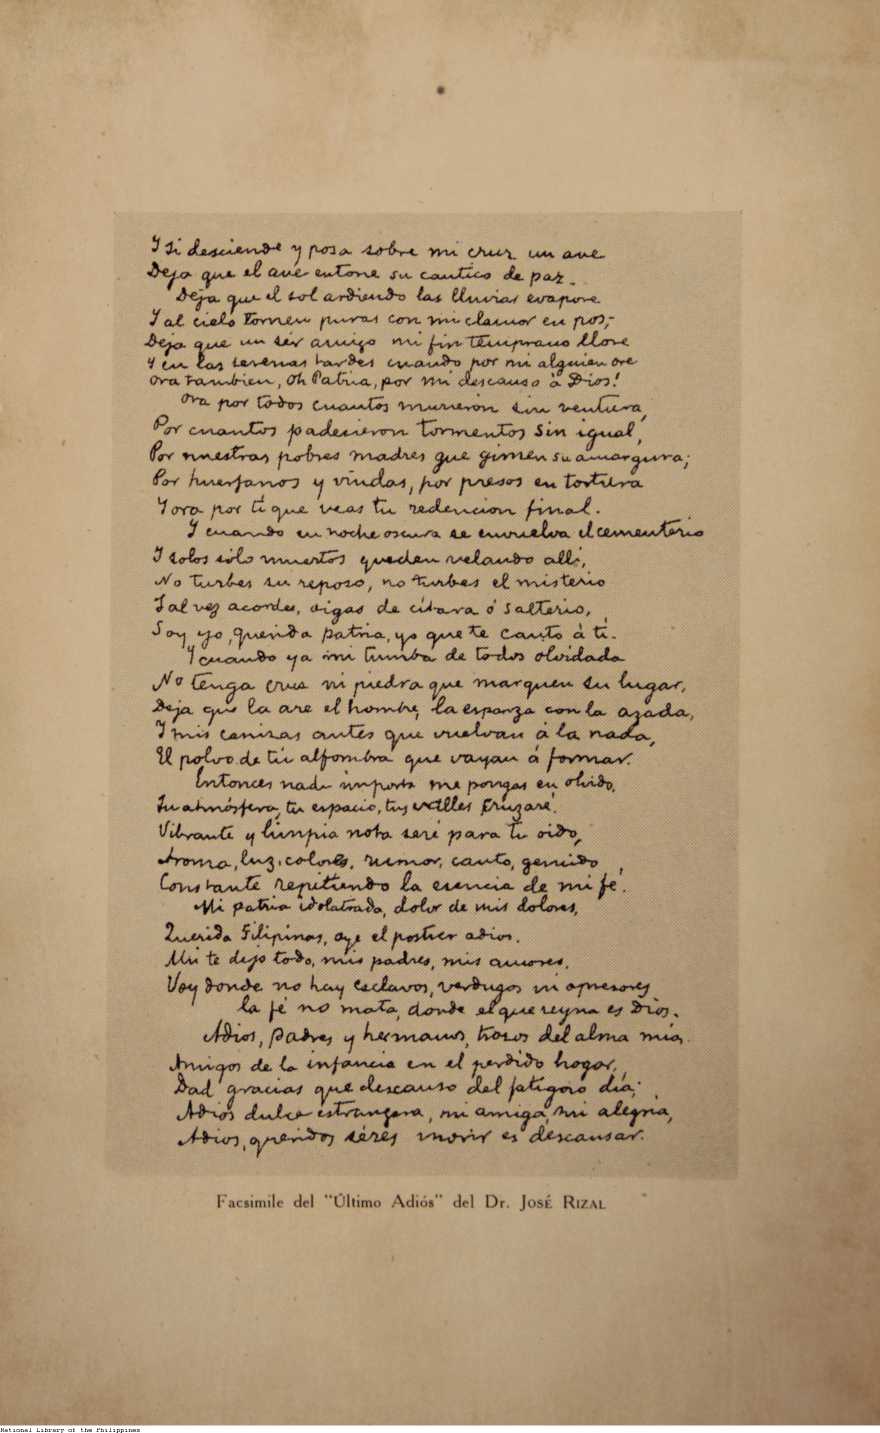 Y si desciende y posa sobre mi cruz un ave
Deja que el ave entone su cantico de paz.
Deja que el sol ardiendo las lluvias evapore
Y al cielo tornen puras con mi clamor en pos;-
Deja que un sér amigo mi fin temprano llore
Y en las serenas tardes cuando por mi alguien ore
Ora tambien, Oh Patria, por mi descanso à Dios!
Ora por todos cuantos murieron sin ventura,
Por cuantos padecieron tormentos sin igual,
Por nuestras pobres madres que gimen su amargura;
Por huerfanos y viudas, por presos en tortura
Y ora por tí que veas tu redencion final.
Y cuando en noche oscura se envuelva el cementerio
Y solos sólo muertos queden velando allí,
No turbes su reposo, no turbes el misterio
Tal vez acordes, oigas de citara ó salterio,
Soy yo, querida patria, yo que te canto à ti.
Y cuando ya mi tumba de todos olvidada
No tenga cruz ni piedra que marquen su lugar,
Deja que la are el hombre, la esparza con la azada,
Y mis cenizas antes que vuelvan à la nada,
El polvo de tu alfombra que vayan á formar.
Entonces nada importa me pongas en olvido,
Tu atmósfera, tu espacio, tus valles cruzaré.
Vibrante y limpia nota seré para tu oido,
Aroma, luz, colores, rumor, canto, gemido,
Constante repitiendo la esencia de mi fé.
Mi patria idolatrada, dolor de mis dolores,
Querida Filipinas, oye el postrer adios.
Ahi te dejo todo, mis padres, mis amores.
Voy donde no hay esclavos, verdugos ni opresores
la fé no mata, donde el que reyna es Dios.
Adios, padres y hermanos, trozos del alma mia,
Amigos de la infancia en el perdido hogar,
Dad gracias que descanso del fatigoso dia;
Adios dulce estrangera, mi amiga, mi alegria,
Adios, queridos séres morir es descansar.
Facsimile del "Último Adiós" del Dr. José Rizal
National Library of the Philippines